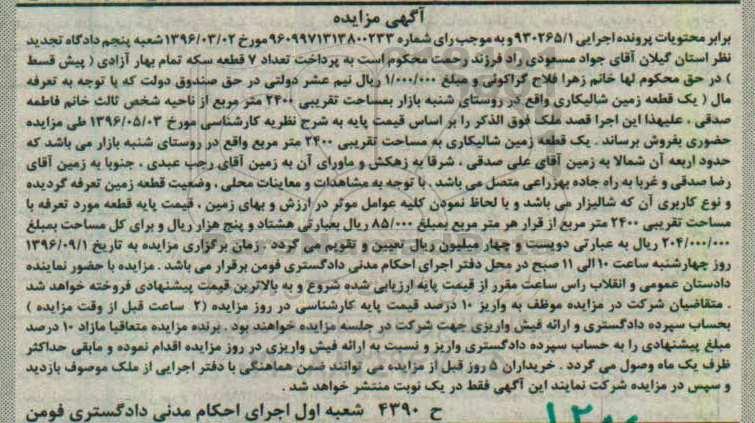 آگهی مزایده
برابر محتویات پرونده اجرایی ۹۳۰۲۶۵/۱ و به موجب رای شماره ۹۶۰۹۹۷۱۳۱۳۸۰۰۲۳۳ مورخ ۱۳۹۶/۰۳/۰۲ شعبه پنجم دادگاه تجدید
نظر استان گیلان آقای جواد مسعودی راد فرزند رحمت محکوم است به پرداخت تعداد ۷ قطعه سکه تمام بهار آزادی ( پیش قسط
) در حق محکوم لها خانم زهرا فلاح گراکوئی و مبلغ ۱/۰۰۰/۰۰۰ ریال نیم عشر دولتی در حق صندوق دولت که با توجه به تعرفه
مال ( یک قطعه زمین شالیکاری واقع در روستای شنبه بازار بمساحت تقریبی ۲۴۰۰ متر مربع از ناحیه شخص ثالث خانم فاطمه
صدقی ، علیهذا این اجرا قصد ملک فوق الذکر را بر اساس قیمت پایه به شرح نظریه کارشناسی مورخ ۱۳۹۶/۰۵/۰۳ طی مزایده
حضوری بفروش برساند . یک قطعه زمین شالیکاری به مساحت تقریبی ۲۴۰۰ متر مربع واقع در روستای شنبه بازار می باشد که
حدود اربعه آن شمالا به زمین آقای علی صدقی ، شرقا به زهکش و ماورای آن به زمین آقای رجب عبدی ، جنوبا به زمین آقای
رضا صدقی و غربا به راه جاده بهزراعی متصل می باشد . با توجه به مشاهدات و معاینات محلی ، وضعیت قطعه زمین تعرفه گردیده
و نوع کاربری آن که شالیزار می باشد و با لحاظ نمودن کلیه عوامل موثر در ارزش و بهای زمین ، قیمت پایه قطعه مورد تعرفه با
مساحت تقریبی ۲۴۰۰ متر مربع از قرار هر متر مربع بمبلغ ۸۵/۰۰۰ ریال بعبارتی هشتاد و پنج هزار ریال و برای کل مساحت بمبلغ
۲۰۴/۰۰۰/۰۰۰ ریال به عبارتی دویست و چهار میلیون ریال تعیین و تقویم می گردد . زمان برگزاری مزایده به تاریخ ۱۳۹۶/۰۹/۱
روز چهارشنبه ساعت ۱۰ الی ۱۱ صبح در محل دفتر اجرای احکام مدنی دادگستری فومن برقرار می باشد . مزایده با حضور نماینده
دادستان عمومی و انقلاب راس ساعت مقرر از قیمت پایه ارزیابی شده شروع و به بالاترین قیمت پیشنهادی فروخته خواهد شد
. متقاضیان شرکت در مزایده موظف به واریز ۱۰ درصد قیمت پایه کارشناسی در روز مزایده (۲ ساعت قبل از وقت مزایده )
بحساب سپرده دادگستری و ارائه فیش واریزی جهت شرکت در جلسه مزایده خواهند بود . برنده مزایده متعاقبا مازاد ۱۰ درصد
مبلغ پیشنهادی را به حساب سپرده دادگستری واریز و نسبت به ارائه فیش واریزی در روز مزایده اقدام نموده و مابقی حداکثر
ظرف یک ماه وصول می گردد . خریداران ۵ روز قبل از مزایده می توانند ضمن هماهنگی با دفتر اجرایی از ملک موصوف بازدید
و سپس در مزایده شرکت نمایند این آگهی فقط در یک نوبت منتشر خواهد شد .
ح ۴۳۹۰ شعبه اول اجرای احکام مدنی دادگستری فومن